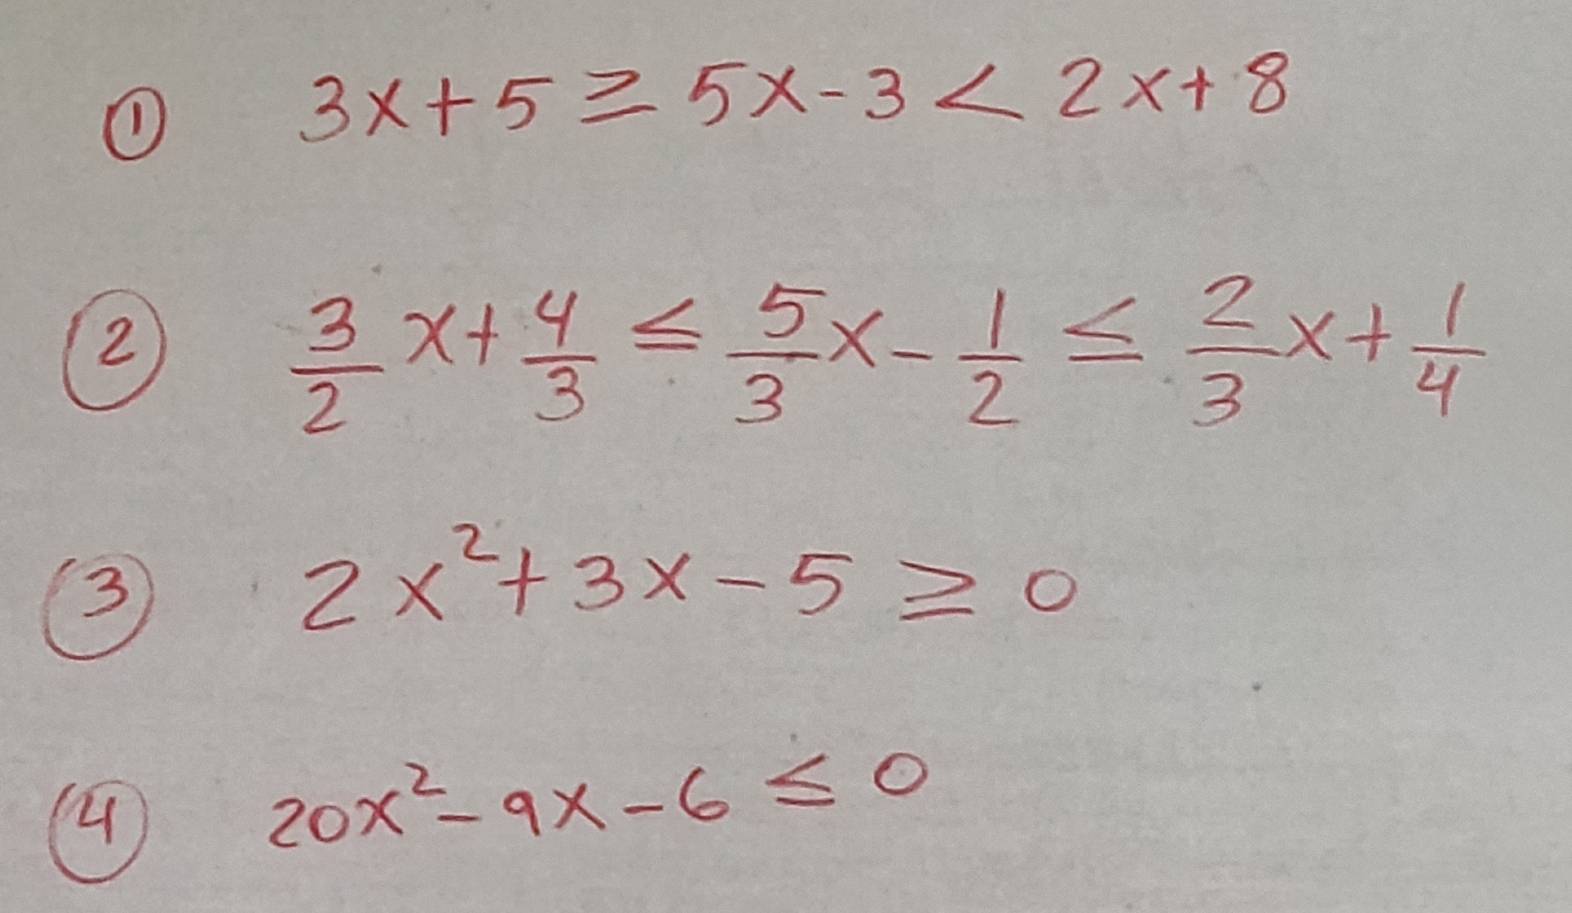 ① 3x+5 ≥ 5x-3 < 2x+8
② 3/2 x + 4/3 ≤ 5/3 x - 1/2 ≤ 2/3 x + 1/4
③ 2x² + 3x - 5 ≥ 0
④ 20x² - 9x - 6 ≤ 0